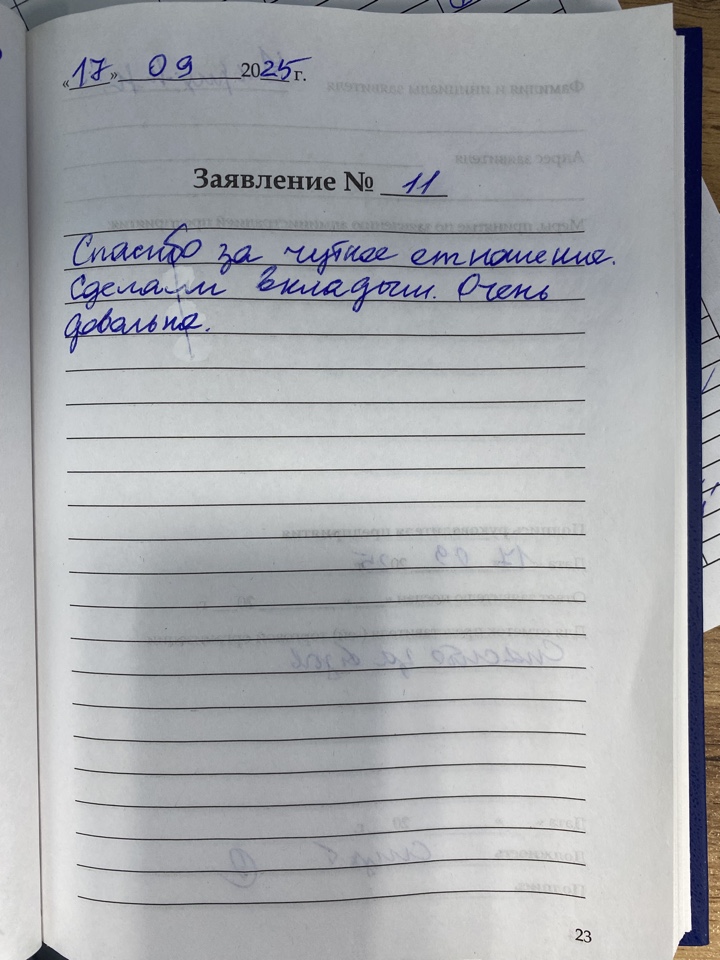 «17» 09 2025г.
Заявление № 11
Спасибо за чуткое отношение.
Сделали вкладыши. Очень
довольна.
23